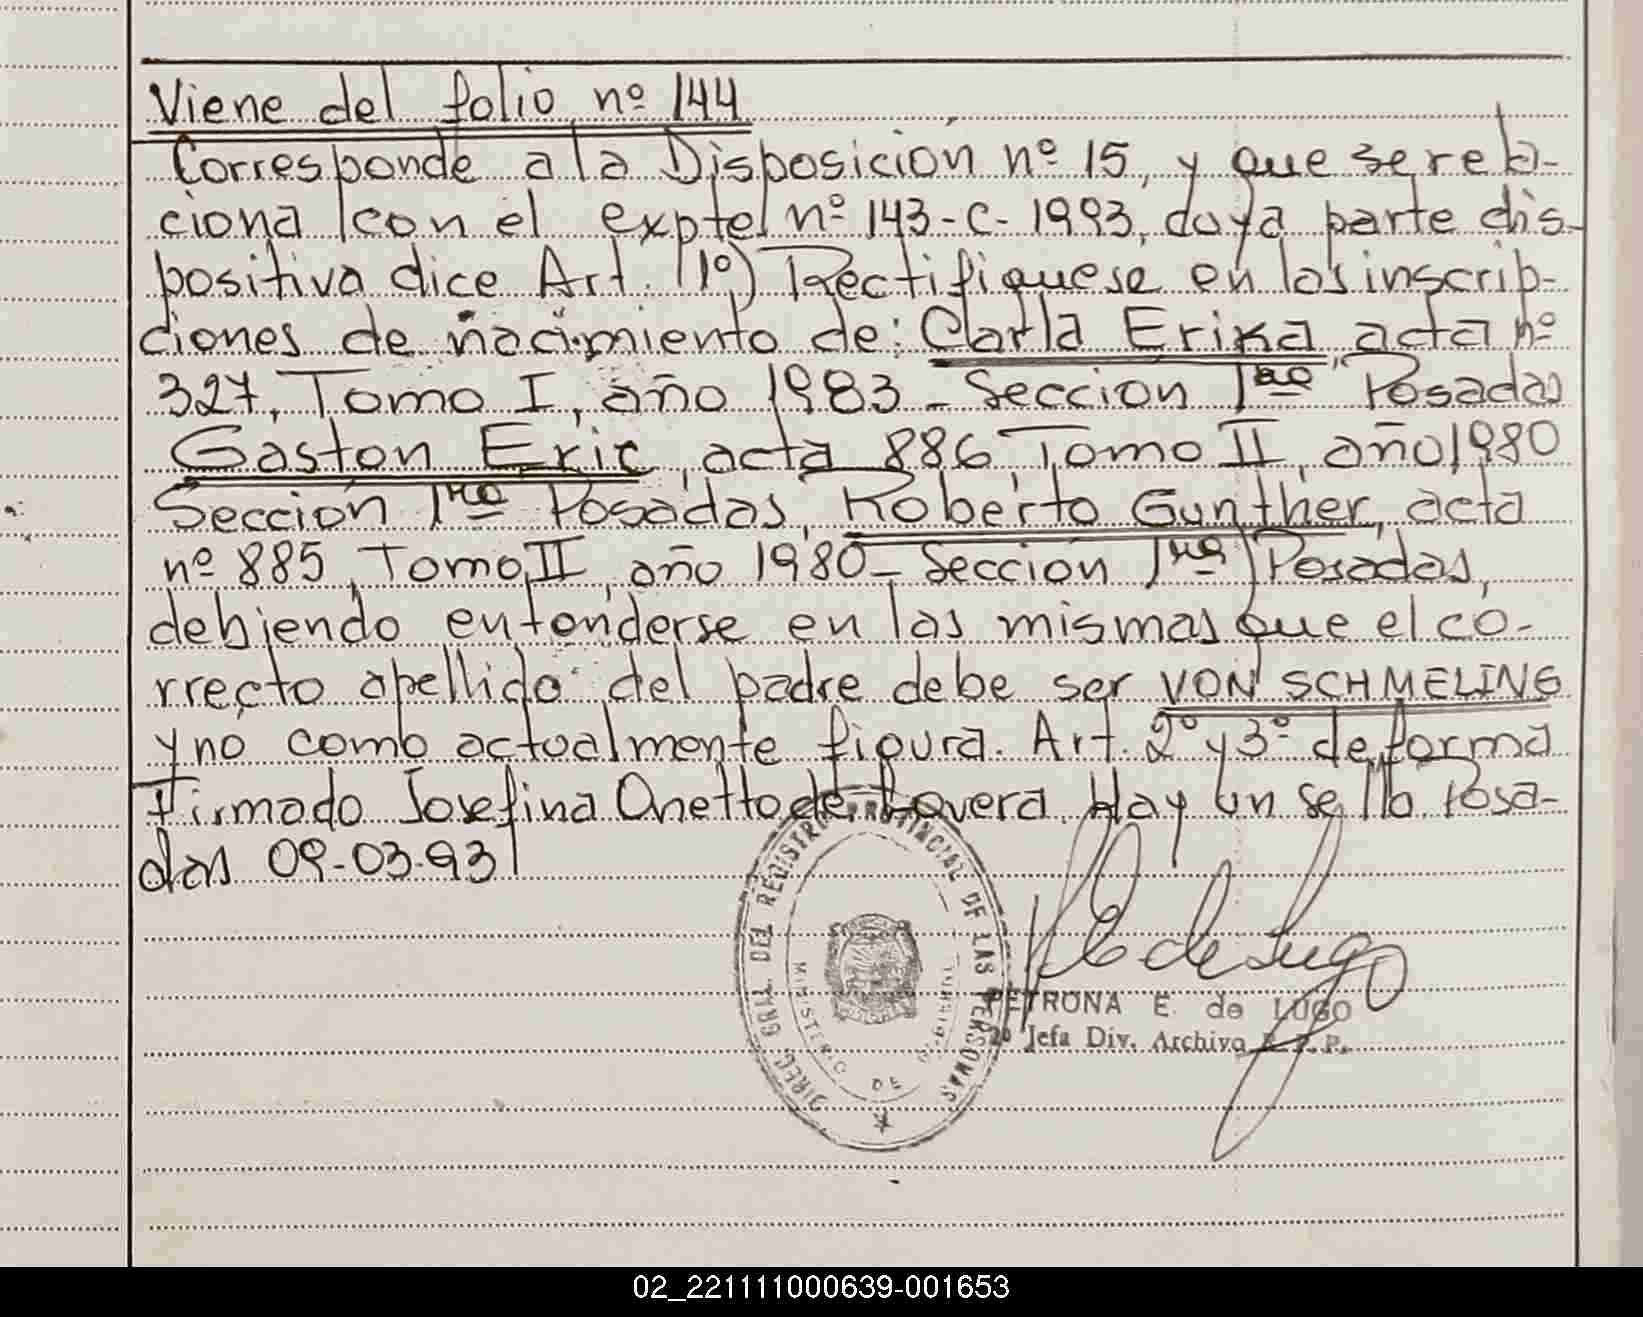 Viene del folio nº 144
Corresponde a la Disposicion nº 15, y que se rela-
ciona con el expte nº 143-C-1993, cuya parte dis-
positiva dice Art. (1º) Rectifiquese en las inscrip-
ciones de nacimiento de: Carla Erika acta nº
327, Tomo I, año 1983 - Seccion 1ra Posadas
Gaston Eric, acta 886, Tomo II, año 1980
Sección 1ra Posadas, Roberto Gunther, acta
nº 885, Tomo II, año 1980 - Sección 1ra Posadas,
debiendo entenderse en las mismas que el co-
rrecto apellido del padre debe ser VON SCHMELING
y no como actualmente figura. Art. 2º y 3º de forma
Firmado Josefina Onetto de Lovera. Hay un sello. Posa-
das 09-03-93
DIREC. GRAL. DEL REGISTRO PROVINCIAL DE LAS PERSONAS
MINISTERIO DE
de Lugo
PETRONA E. de LUGO
2º Jefa Div. Archivo R. P. P.
02_221111000639-001653